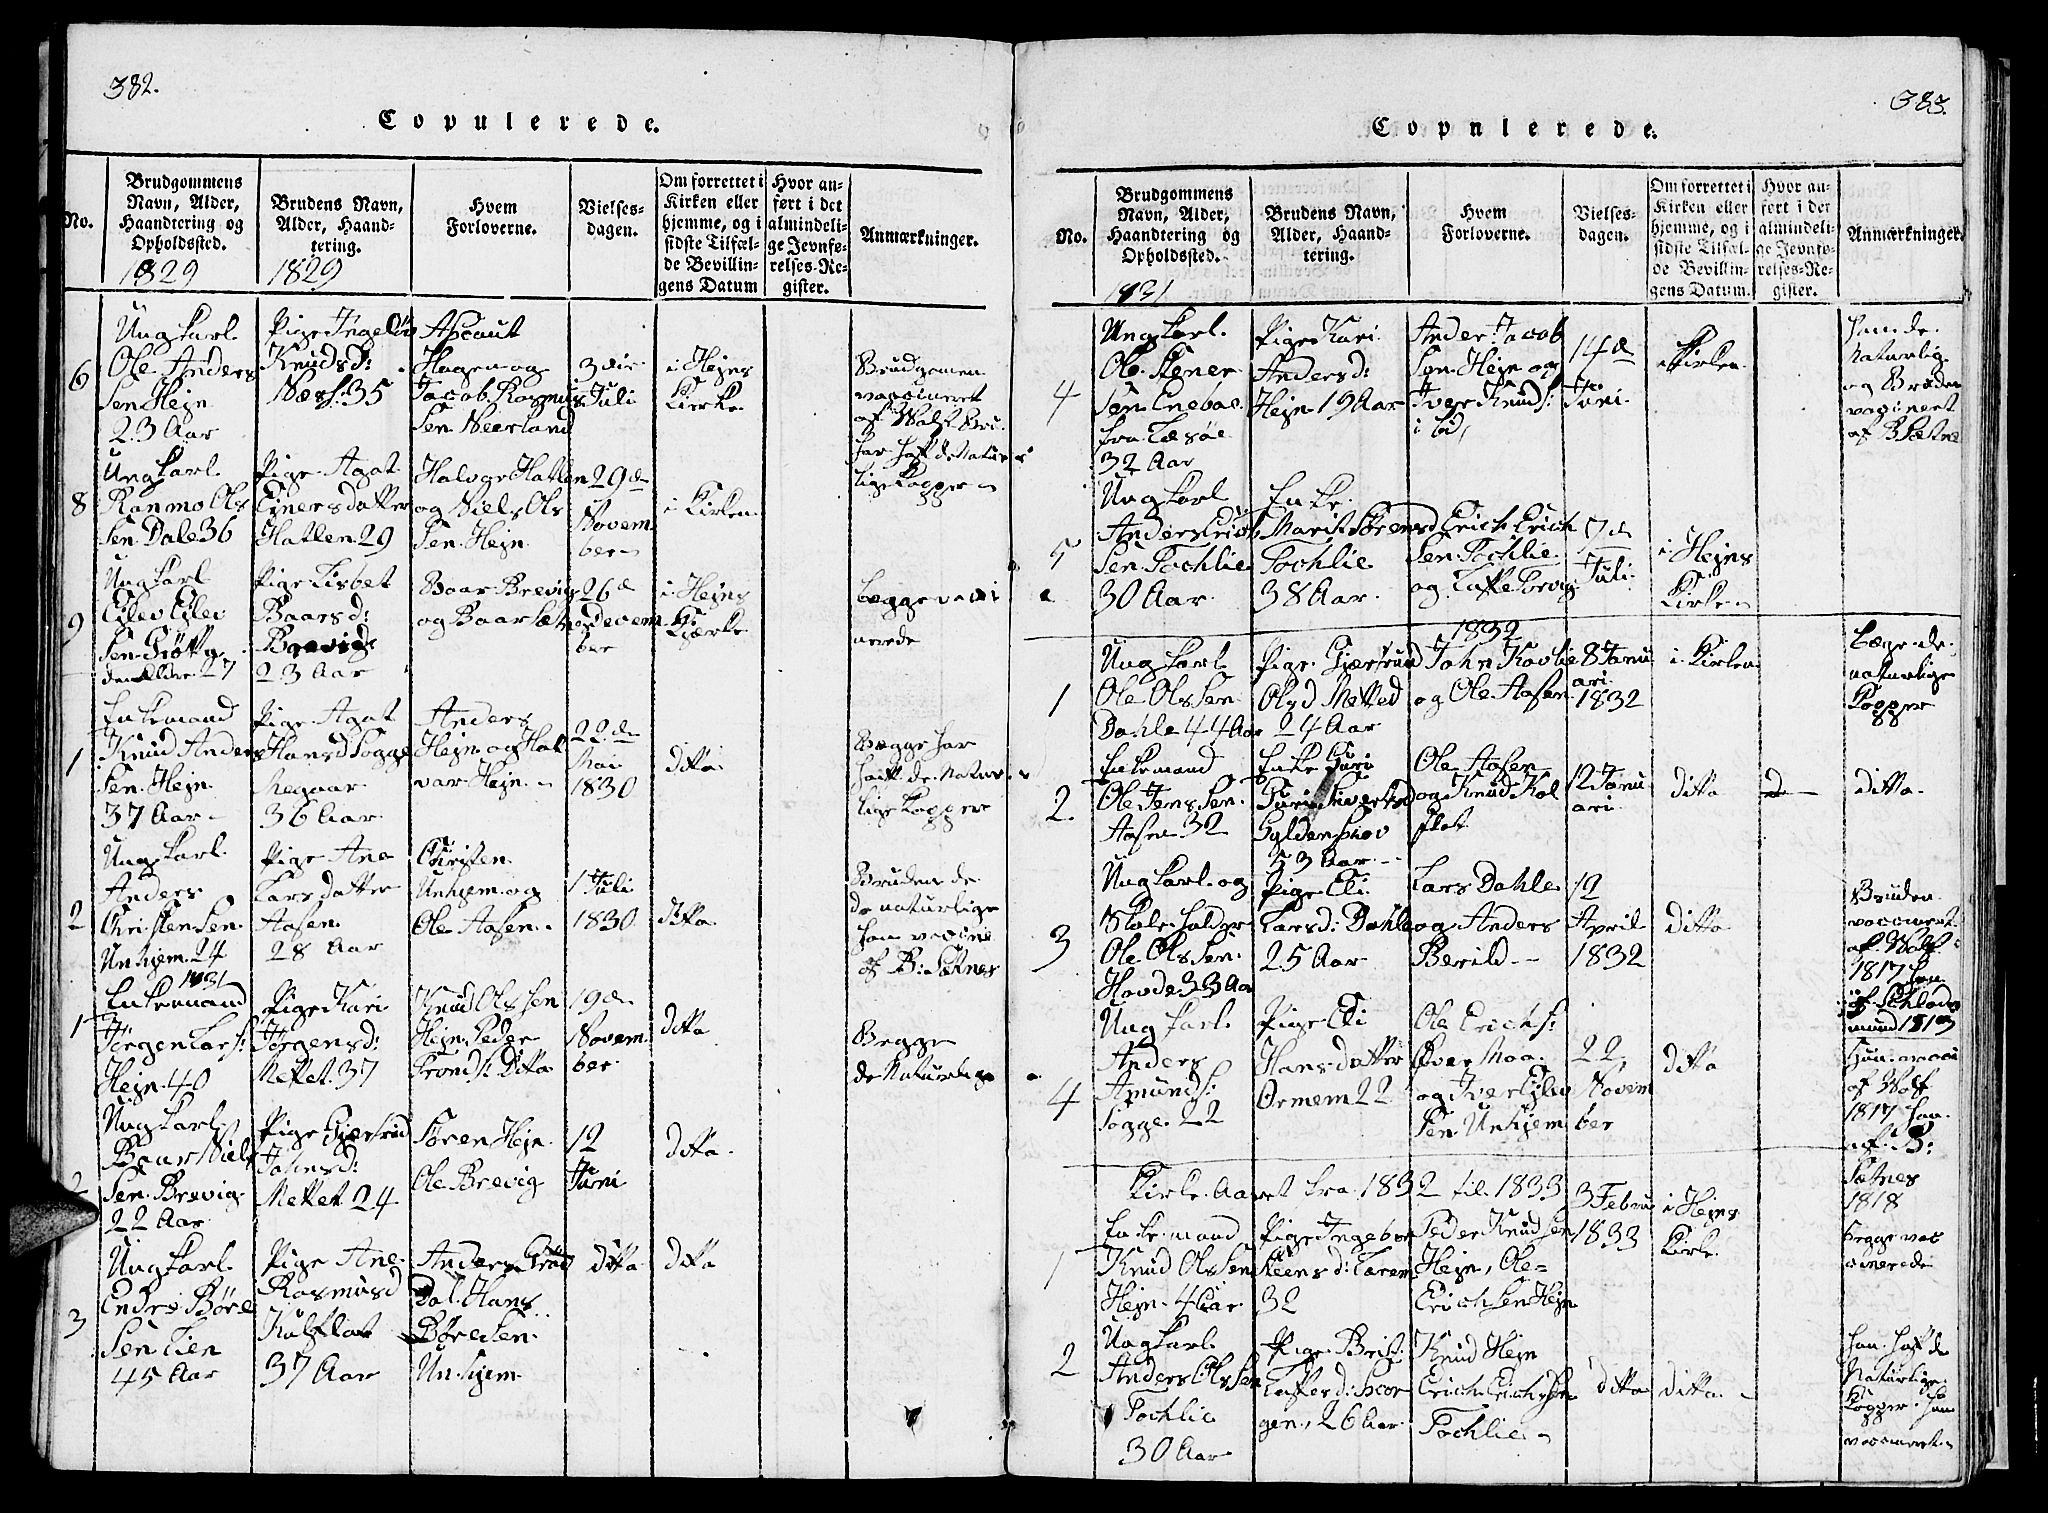 382.
Copulerede.
No.
Brudgommens
Navn, Alder,
Haandtering og
Opholdssted.
1829
Brudens Navn,
Alder, Haand-
tering.
1829
Hvem
Forloverne.
Vielses-
dagen.
Om forrettet i
Kirken eller
hjemme, og i
sidste Tilfæl-
de Bevillin-
gens Datum
Hvor an-
ført i det
almindeli-
ge Jevnfø-
relses-Re-
gister.
Anmærkninger.
6
Ung Karl
Ole Anders
Sen Hejn
23 Aar
Pige
Knudsd:
Næss: 35
Hagen og
Jacob Rasmus
Sen Neerland
3die
Juli
i Hejns
Kirke
Brudgomen
vaccineret
af Wolf Bru.
har haft de Natur
lige Kopper
8
Ung Karl
Ole
Sen Dale 36
Pige Agat
Ejnersdatter
Hatlen 29
Halvor Hatlen
og Niels Ols
Sen Hejn
29de
Novem
ber
i Kirken
9
Ung Karl
Ejlev Ejlev
Sen
27
Pige Lisbet
Baarsd:
Brevig
23 Aar
Baar Brevig
og Baar
26de
Devem
ber
i Hejns
Kjærke
begge vacci
nerede
1
Enkemand
Knud Anders
Sen Hejn
37 Aar
Pige Agat
Hansd Sogge
36 Aar
Anders
Hejn og Hal
var Hejn
22de
Mai
1830
ditto
Begge har
haft de Natur
lige Kopper
2
Ung Karl
Anders
Christensen
Unhjem 24
Pige Ane
Larsdatter
Aasen
28 Aar
Christen
Unhjem og
Ole Aasen
1 Juli
1830
ditto
Bruden de
de naturlige
han vaccine
af B: Sætnes
1831
1
Enkemand
Jørgen Lars:
Hejn 40
Pige Kari
Jørgensd:
Mettet 37
Knud Olssen
Hejn Peder
Tronds: Ditto
19de
Novem
ber
ditto
Begge
de Naturlige
2
Ung Karl
Baar Niels
Sen Brevig
22 Aar
Pige Gjertrud
Johnsd:
Mettet 24
Søren Hejn
Ole Brevig
12
Juni
ditto
3
Ung Karl
Endre Børe
Sen Lien
45 Aar
Pige Ane
Rasmusd
Kulflot
37 Aar
Anders Grød
Dal Hans
Børesen
Unhjem
ditto
ditto
383.
Copnlerede.
No.
Brudgommens
Navn, Alder,
Haandtering og
Opholdssted.
1831
Brudens Navn,
Alder, Haand-
tering.
Hvem
Forloverne.
Vielses-
dagen.
Om forrettet i
Kirken eller
hjemme, og i
sidste Tilfæl-
de Bevillin-
gens Datum.
Hvor an-
ført i det
almindeli-
ge Jevnfø-
relses-Re-
gister.
Anmærkninger.
4
Ung Karl
Ole Stener
Sen Eneboe
fra Læsøe
32 Aar
Pige Kari
Andersd:
Hejn 19 Aar
Ander Jacob
Sen Hejn og
Iver Knuds:
ibid
14de
Juni
i Kirken
han de
Naturlig
og Bruden
vaccinert
af B Sætnes
5
Ung Karl
Anders Erich
Sen Tochlie
30 Aar
Enke
Marit Sørensd
Tochlie
38 Aar
Erich Erich
Sen Tochlie
og
7de
Juli
i Hejns
Kirke
1832
1
Ung Karl
Ole Olssen
Dahle 44 Aar
Pige Gjertrud
Olsd Mettet
24 Aar
John Kavlie
og Ole Aasen
8 Janu
ari
1832
i Kirken
begge de
naturlige
Kopper
2.
Enkemand
Ole Jenssen
Aasen 32
Enke Guri
Guri Siverstsd
Gyldenskov
53 Aar
Ole Aasen
og Knud Kol
flot
12 Janu
ari
ditto
ditto
3
Ung Karl og
Skoleholder
Ole Olssen
Hovde 33 Aar
Pige Eli
Larsd: Dahle
25 Aar
Lars Dahle
og Anders
Berild
12
April
1832
ditto
Bruden
vaccinert
af Wolf
1817 han
4
Ung Karl
Anders
Amunds:
Sogge 22
Pige Eli
Hansdatter
Ormem 22
Ole Erichs:
Øver Moa
og Iver Ejlev
Sen Unhjem
22
Novem
ber
ditto
Hun vacci
af Wolf
1817 han
af B:
Sætnes
1818
Kirke Aaret fra 1832 til 1833
1
Enkemand
Knud Olssen
Hejn 40 Aar
Pige Ingebor
Steensd: Larem
32
Peder Knudsen
Hejn, Ole
Erichsen Hejn
3 Febru
1833
i Hejns
Kirke
begge vac
cinerede
2
Ung Karl
Anders Olssen
Tochlie
30 Aar
Pige Brit
Laffesd: Skor
gen, 26 Aar
Knud Hejn
Erich Erichsen
Tochlie
ditto
ditto
han haft de
Naturlige
Kopper hun
vaccineret